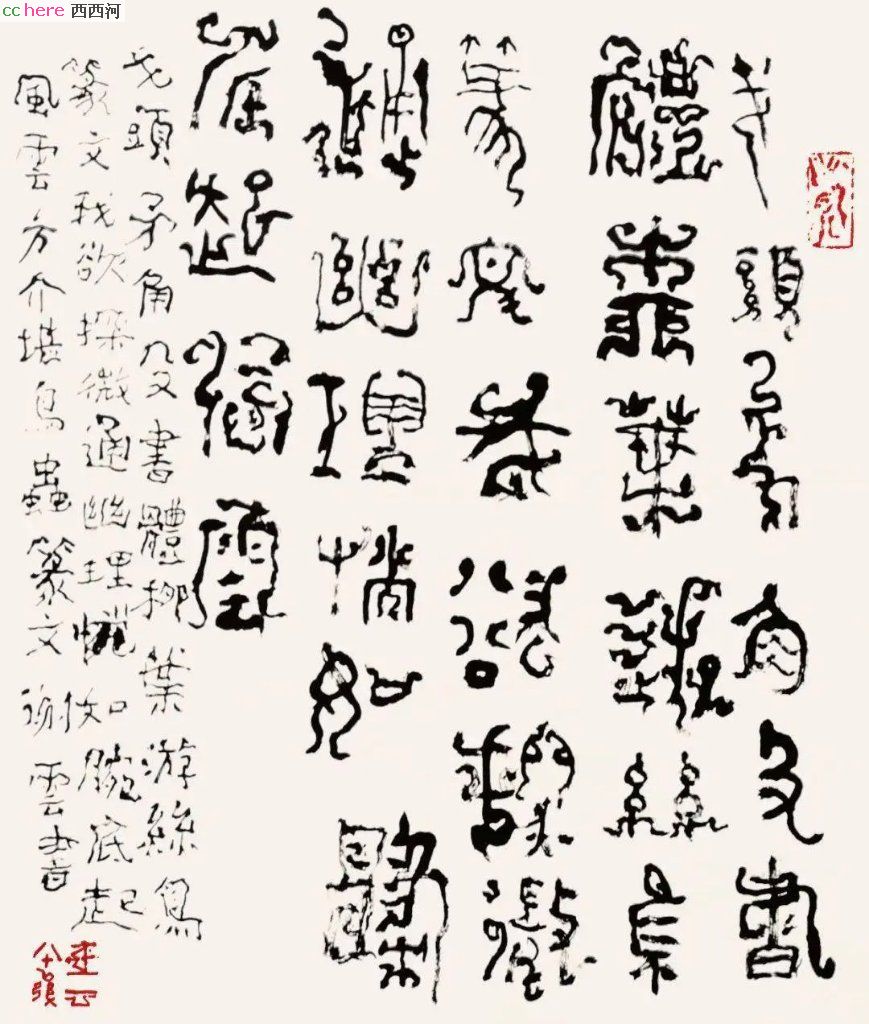 戈頭矛角殳書
體柳葉游絲鳥
篆文我欲探微
通幽理如腕
底起風雲
戈頭矛角殳書體柳葉游絲鳥
篆文我欲探微通幽理如腕底起
風雲方介堪鳥蟲篆文謝雲書
cchere 西西河